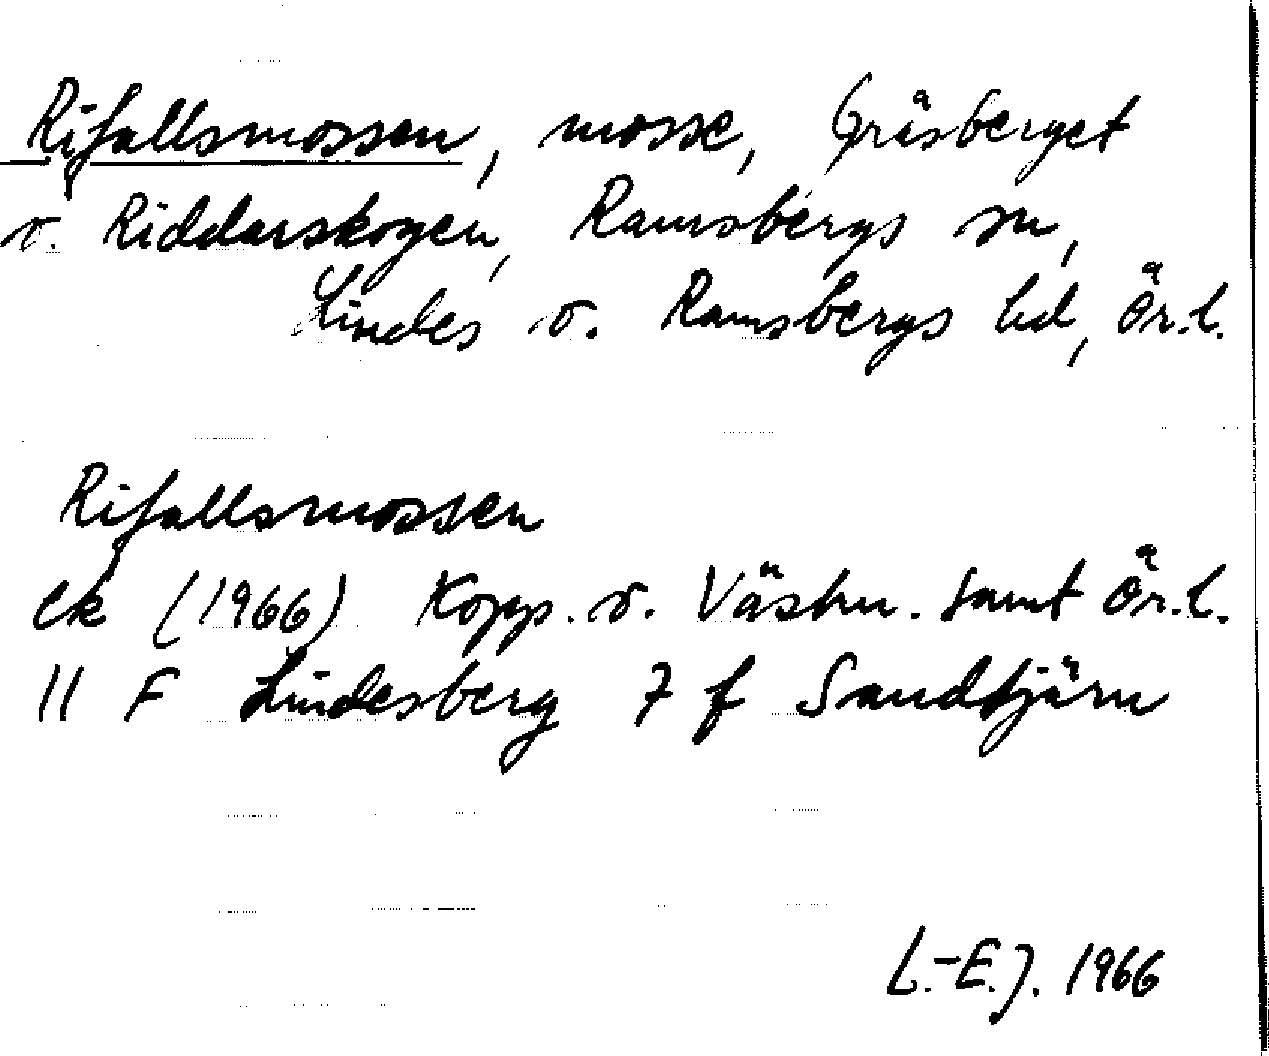 Rifallsmossen, mosse, Gråsberget
o. Riddarskogen, Ramsbergs sn,
Lindes o. Ramsbergs bd, Ör.l.
Rifallsmossen
ek (1966) Kopp. o. Västm. samt Ör.l.
11 F Lindesberg 7 f Sandtjärn
L.-E.J. 1966